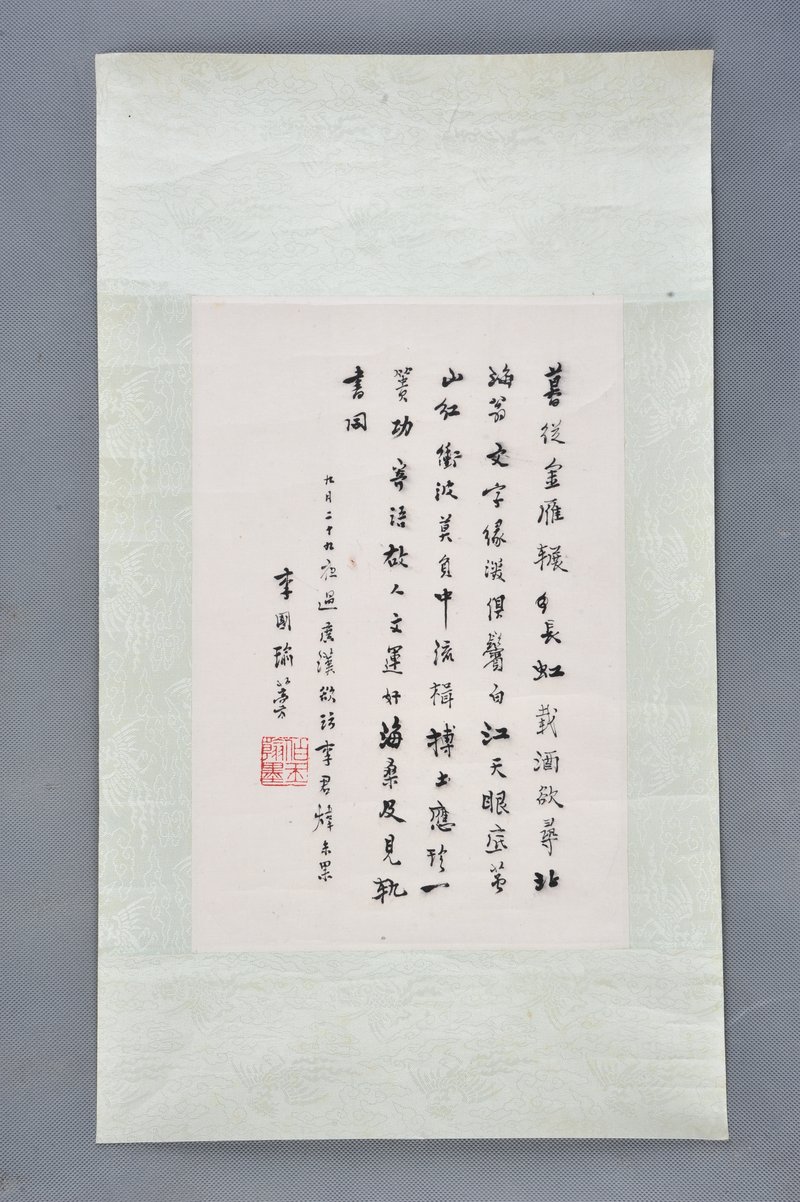 暮從金雁輾長虹載酒欲尋北
海翁文字緣深俱鬢白江天眼底萬
山紅衝波莫負中流楫搏土應珍一
簣功寄語故人文運好海桑及見軌
書同
九月二十九夜過廣漢欲訪李君煒未果
李國瑜
翰墨